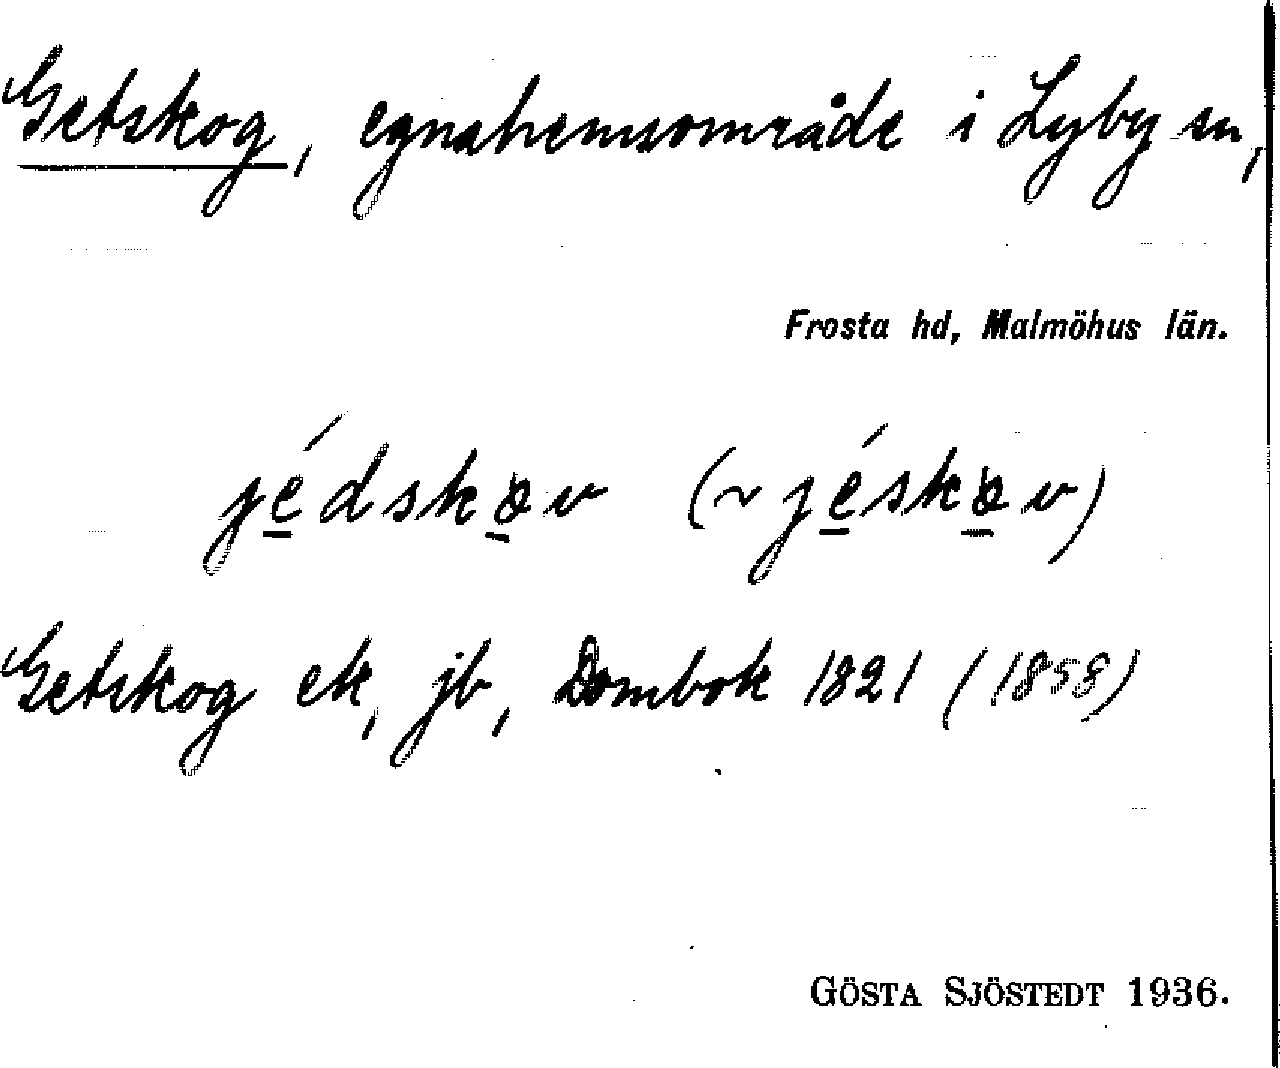 Getskog, egnahemsområde i Lyby sn,
Frosta hd, Malmöhus län.
jédskov (~ jéskov)
Getskog ek, jb, Dombok 1821 (1858)
GÖSTA SJÖSTEDT 1936.